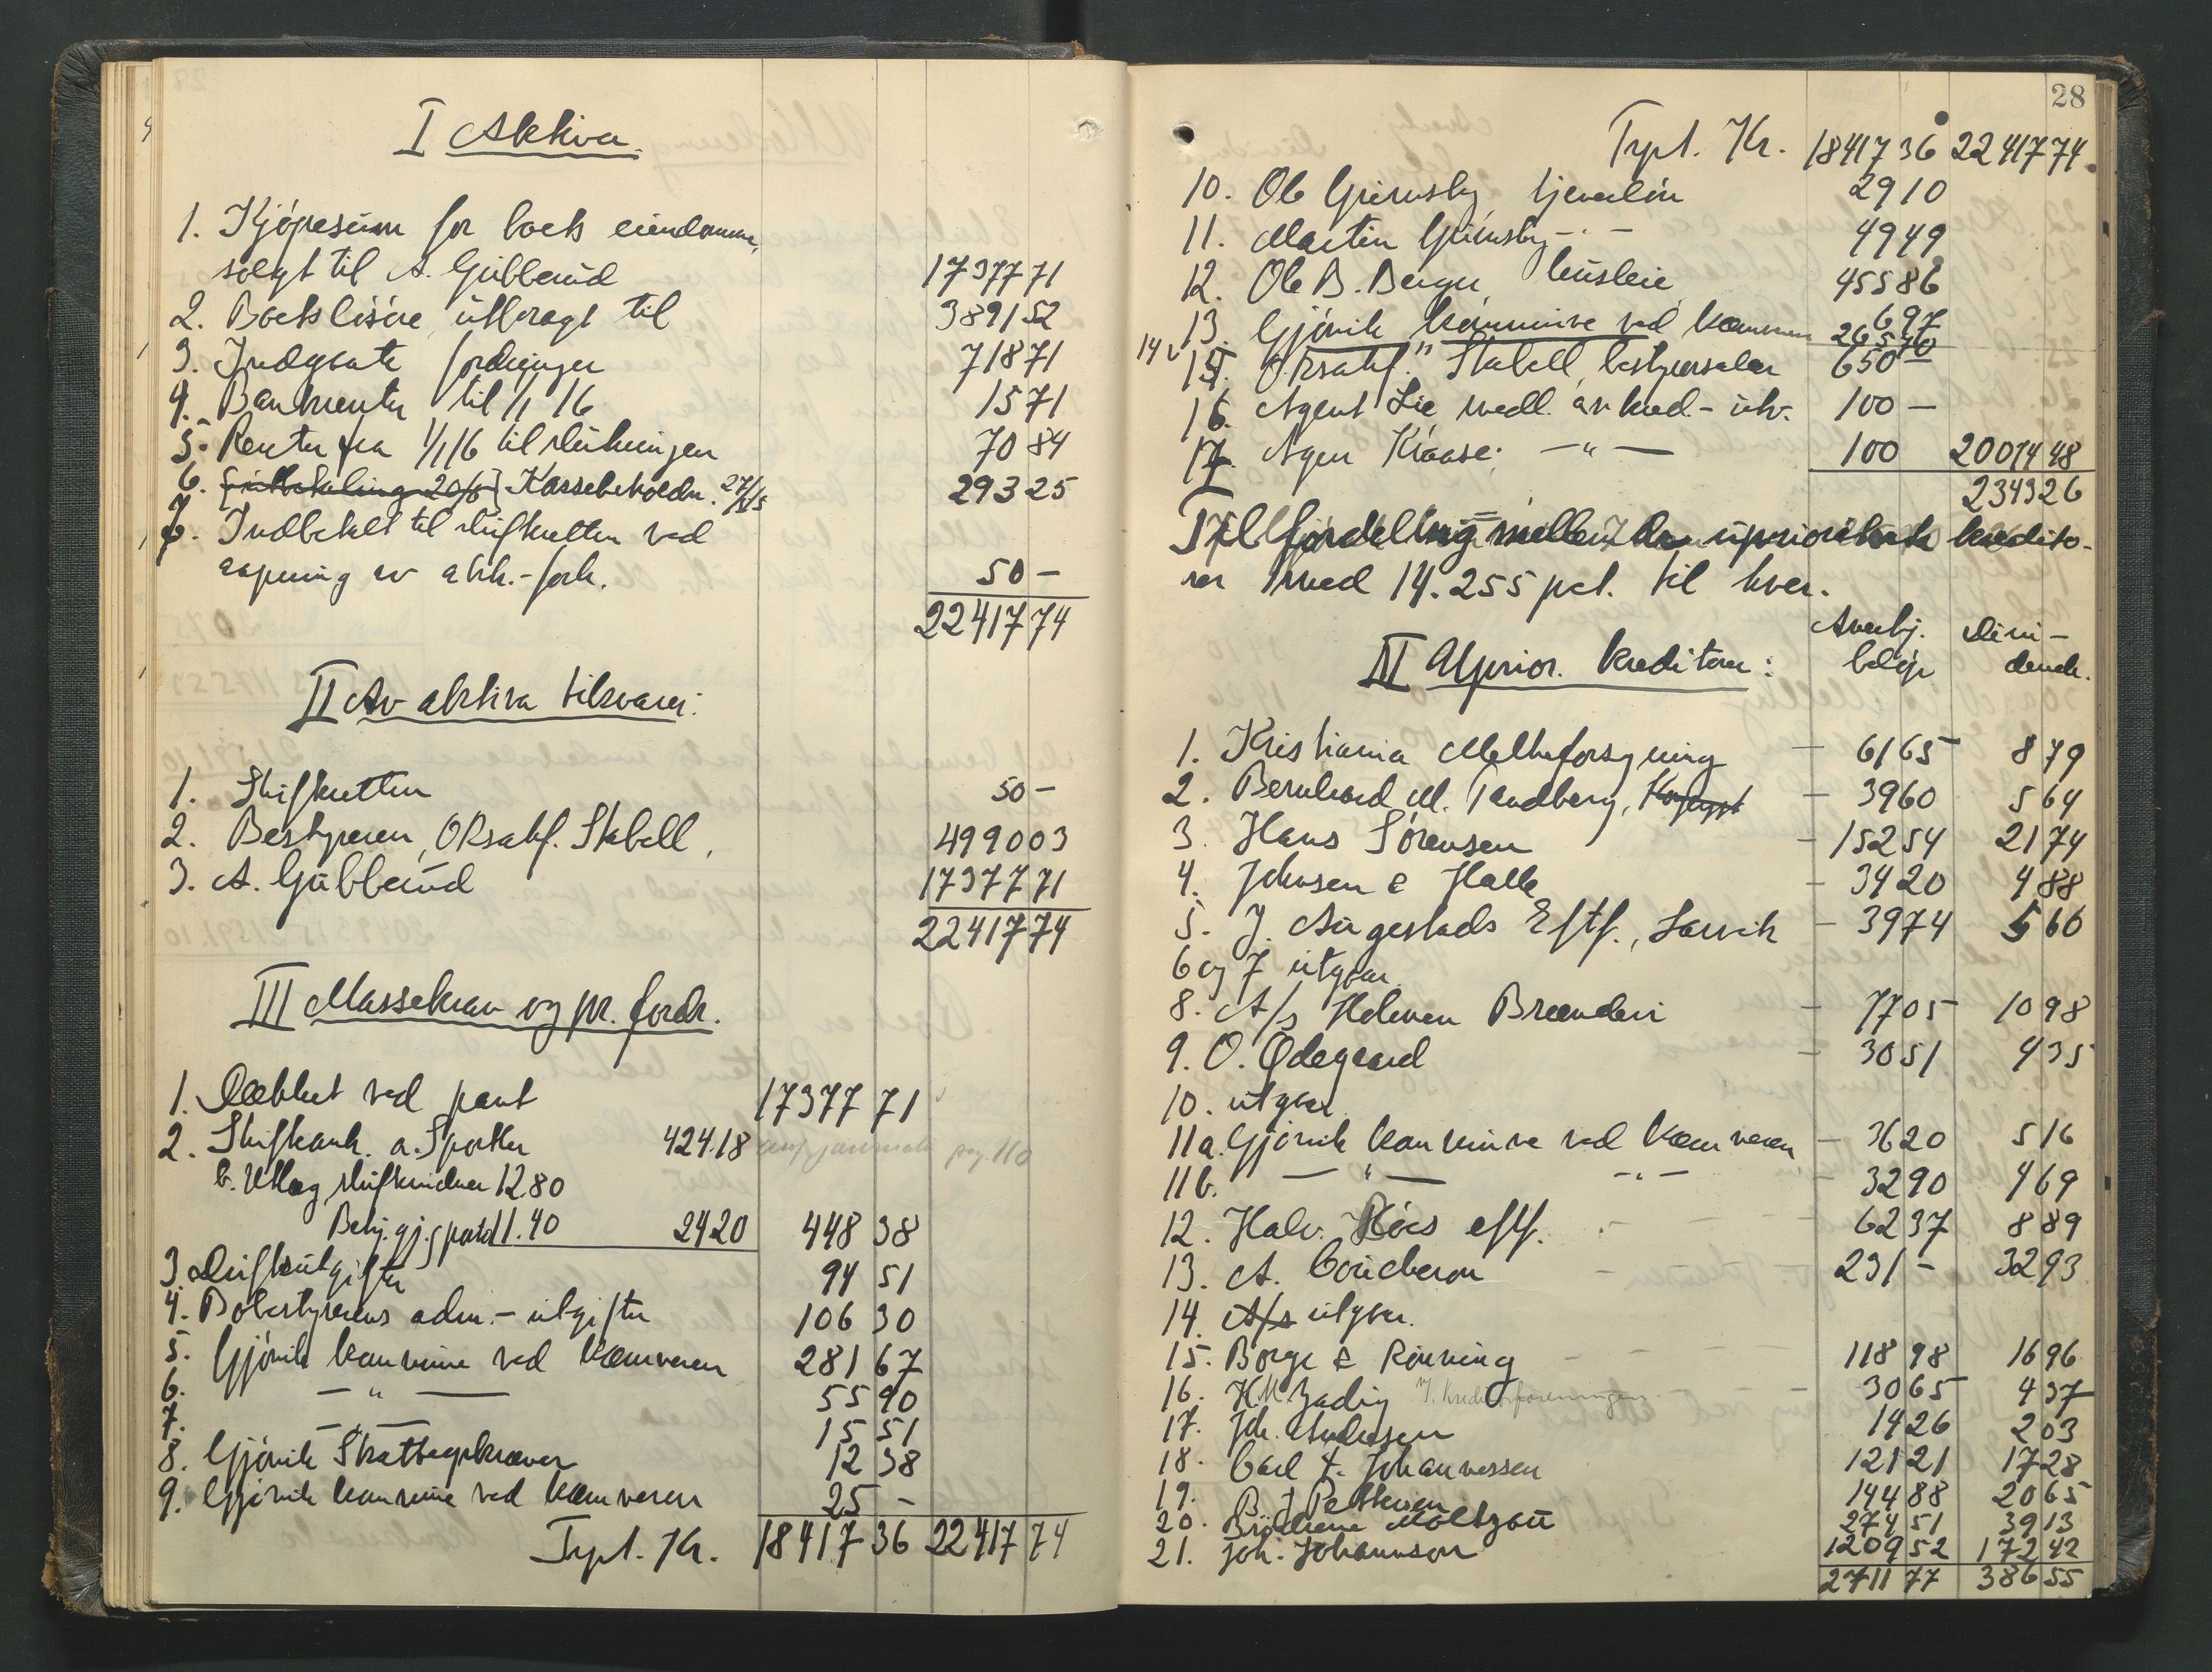 I Aktiva.
1. Kjøpesum for boets eiendommer,
solgt til A. Gubberud 17377 71
2. Boets løsøre utbragt til 3891 52
3. Indgaate fordringer 718 71
4. Bankrenter til 1/1 16 15 71
5. Renter fra 1/1 16 til slutningen 70 84
6. Kassebeholdn. 27/ 293 25
7. Indbetalt til skifteretten ved
aapning av akk.-forh. 50 —
22417 74
II Av aktiva tilsvarer:
1. Skifteretten 50 —
2. Bestyreren, OKsakf. Stabell, 4990 03
3. A. Gubberud 17377 71
22417 74
III Massekrav og pr. fordr.
1. Dækket ved pant 17377 71
2. Skifteomk. a. Sportler 424.18 pag. 110
b. Utlæg skiftevidner 12.80
Bekj.gj. porto 11.40 24 20 448 38
3. Driftsutgifter 94 51
4. Bobestyrerens adm.- utgifter 106 30
5. Gjøvik kommune ved kæmneren 281 67
6. — " — 55 90
7. — — 15 51
8. Gjøvik Skatteopkræver 12 38
9. Gjøvik kommune ved kæmneren 25 —
Trpt. Kr. 18417 36 22417 74
28
Trpt. Kr. 18417 36 22417 74
10. Ole Grimsby tjenerløn 29 10
11. Martin Grimsby — " — 49 49
12. Ole B. Berger, husleie 455 86
13. Gjøvik kommune ved kæmneren 6 97
14 265 70
15. OKsakf. Stabell, bestyrersalær 650 —
16. Agent Lie medl. av kred.- utv. 100 —
17. Agen Kraase. — " — 100 20074 48
2343 26
Til fordeling mellem de uprioriterte kredito-
rer med 14.255 pct. til hver.
IV Uprior. kreditorer: Anerkj. beløp Divi-dende.
1. Kristiania Melkeforsyning — 61 65 8 79
2. Bernhard M. Tandberg, — 39 60 5 64
3. Hans Sørensen — 152 54 21 74
4. Johnsen & Halle — 34 20 4 88
5. J. Augestads Eftf., Larvik — 39 74 5 66
6 og 7 utgaar
8. A/s Holmen Brænderi — 77 05 10 98
9. O. Ødegaard — 30 51 4 35
10. utgaar
11a. Gjøvik kommune ved kæmneren — 36 20 5 16
11b. — " — — " — 32 90 4 69
12. Halv. Roés eftf. 62 37 8 89
13. A. Coucheron — 231 — 32 93
14. A/s utgaar.
15. Borge & Rønning — 118 98 16 96
16. H.M. Zadig V. Kreditforeningen — 30 65 4 37
17. Joh. Andersen 14 26 2 03
18. Carl F. Johannessen 121 21 17 28
19. B. J. Pettersen 144 88 20 65
20. Brødrene Moltzau 274 51 39 13
21. Joh. Johannson 1209 52 172 42
2711 77 386 55